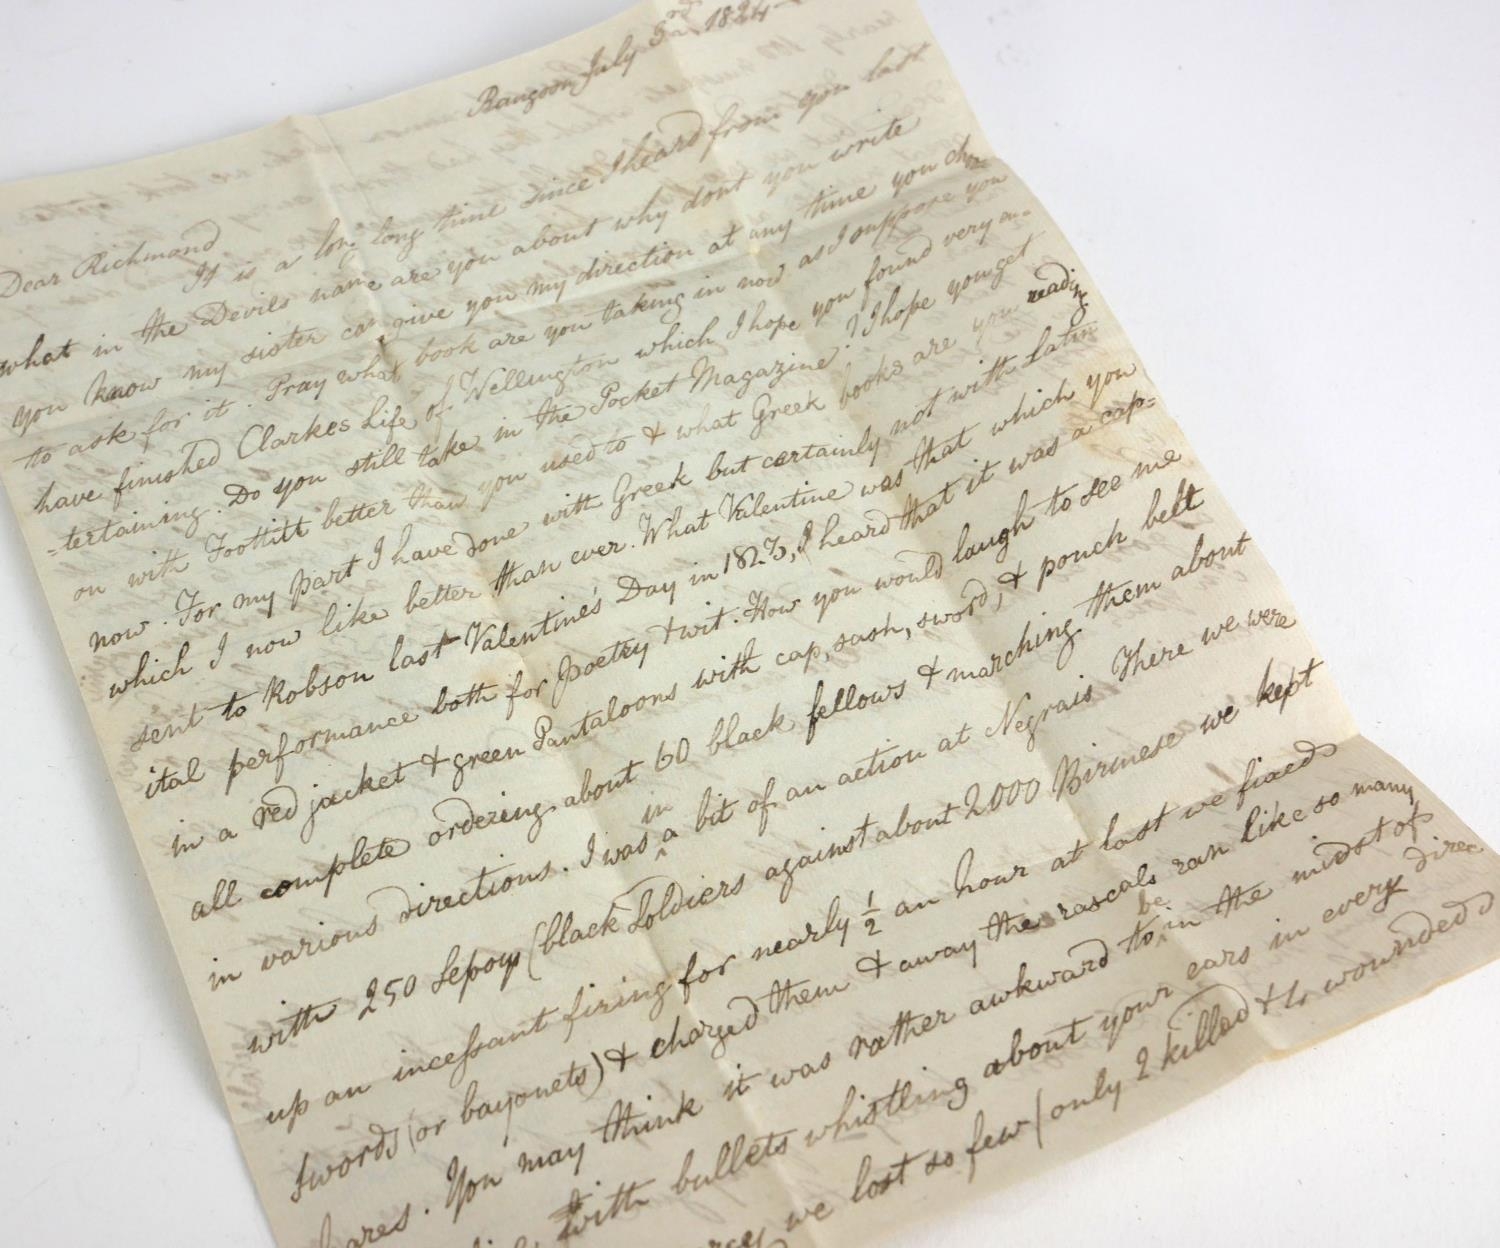 Rangoon July 3rd. 1824
Dear Richmond
It is a long long time since I heard from you last
what in the Devils name are you about why dont you write
you know my sister can give you my direction at any time you chuse
to ask for it. Pray what book are you taking in now as I suppose you
have finished Clarkes Life of Wellington which I hope you found very en=
=tertaining. Do you still take in the Pocket Magazine? I hope you get
on with Foottitt better than you used to & what Greek books are you reading
now. For my part I have done with Greek but certainly not with Latin
which I now like better than ever. What Valentine was that which you
sent to Robson last Valentine's Day in 1823, I heard that it was a cap=
ital performance both for Poetry & wit. How you would laugh to see me
in a red jacket & green Pantaloons with cap, sash, sword, & pouch belt
all complete ordering about 60 black fellows & marching them about
in various directions. I was in a bit of an action at Negrais There we were
with 250 Sepoys (black Soldiers against about 2000 Birmese we kept
up an incessant firing for nearly ½ an hour at last we fixed
swords (or bayonets) & charged them & away the rascals ran like so many
hares. You may think it was rather awkward to be in the midst of
with bullets whistling about your ears in every direc
we lost so few (only 2 killed & wounded